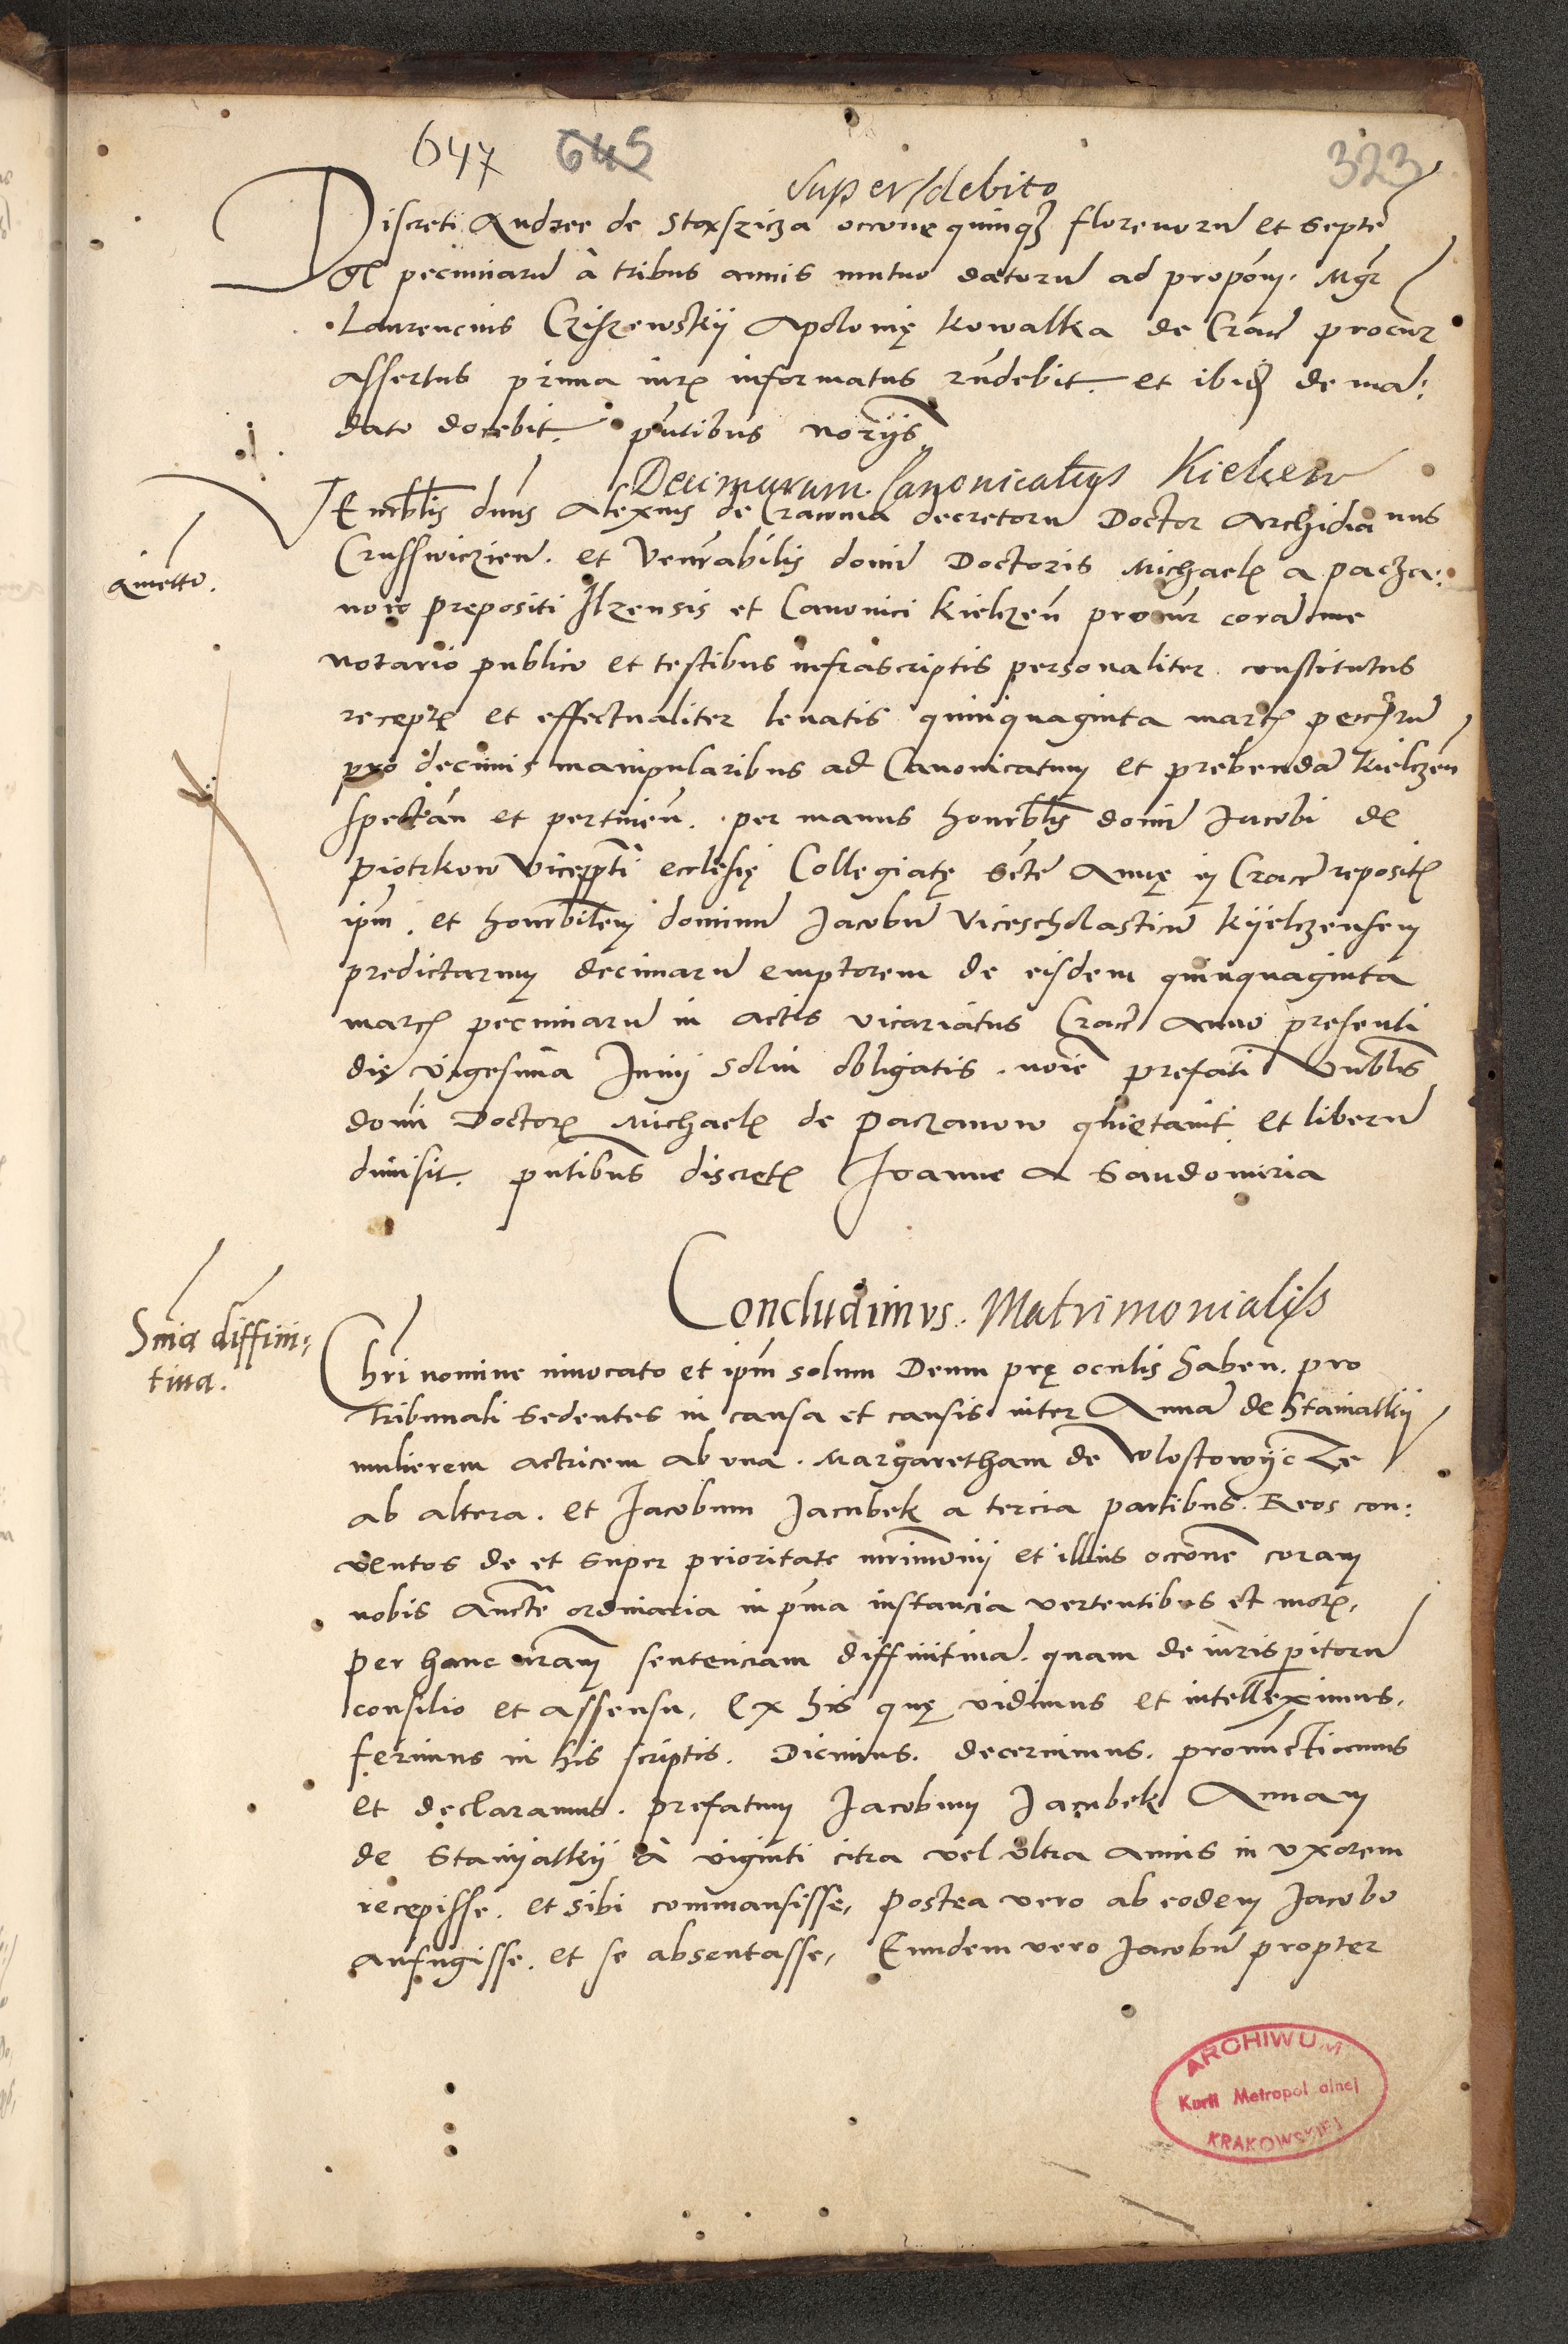 647 645 323
Super debito
Discreti Andree de Stoxsicza occone quinq florenorũ et septẽ
gr pecuniarũ à tribus annis mutuo datorũ ad proponm. Mgr
Laurencius Cziszewskÿ Apolonię Kowalka de Crac procur
assertus prima iuris informatus rñdebit. et ibidẽ de man:
dato docebit. pñtibus norÿs
Decimarum Canonicatus Kielcen
Venerblis dnus Alexius de Cracovia decretorũ Doctor Archidia nus
Crusswiczien. et Venerabilis domĩ Doctoris Michaelis a pacza:
quietto.
now prepositi Ilzensis et Canonici Kielczen̄ procur corã me
notario publico et testibus infrascriptis personaliter constitutus
receptis et effectualiter levatis quinquaginta marcis pecũrũ
pro decimis manipularibus ad Canonicatum et prebendã Kielczen̄
spectan̄ et pertinen̄. per manus honorblis domĩ Jacobi de
piotrkow viceppti ecclesię Collegiatę Scte Annę in Crac repositis
ipm̄. et honorbilem dominũ Jacobũ Vicescholasticũ Kÿelczensem
predictarum decimarũ emptorem de eisdem quinquaginta
marcis pecuniarũ in actis vicariatus Crac Anno presenti
die vigesima Junij solvi obligatis. noĩe prefati Vnblis
domĩ Doctoris Michaelis de paczanow quietavit et liberũ
dimisit. pñtibus discretis Joanne a Sandomiria
Concludimus. Matrimonialis
Snia diffini:
tiva.
Chri nomine invocato et ipm̄ solum Deum prę oculis haben. pro
tribunali sedentes in causa et causis inter Annã de Staniatkÿ
mulierem actricem ab una. Margaretham de Wlostowÿcze
ab altera. et Jacobum Jacubek a tercia partibus. Reos con:
ventos de et super prioritate mrimonij et illius occone coram
nobis Aucte ordinaria in pma instancia vertentibus et motis,
per hanc nram̄ sentenciam diffinitivã. quam de iurisperitorũ
consilio et assensu, Ex his quę vidimus et intelleximus,
ferimus in his scriptis. Dicimus. decernimus. pronunctiamus
et declaramus. prefatum Jacobum Jacubek Annam
de Stanÿatkÿ à viginti citra vel ultra annis in uxorem
recepisse. et sibi commansisse, postea vero ab eodem Jacobo
aufugisse. et se absentasse, Eundem vero Jacobũ propter
ARCHIWUM
Kurii Metropolitalnej
KRAKOWSKIEJ